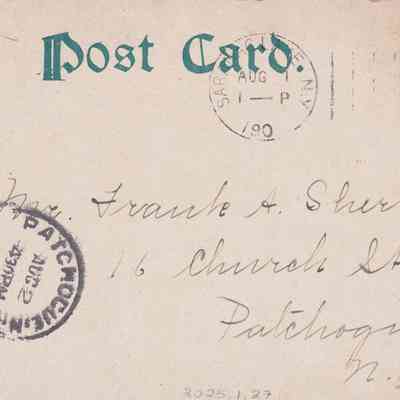 Post Card.
SAR
N.Y.
AUG 1
1 — P
190
Mr. Frank A. Sher
16 Church St
Patchogu
N.
PATCHOGUE, N.
AUG 2
430PM
2025.1.27